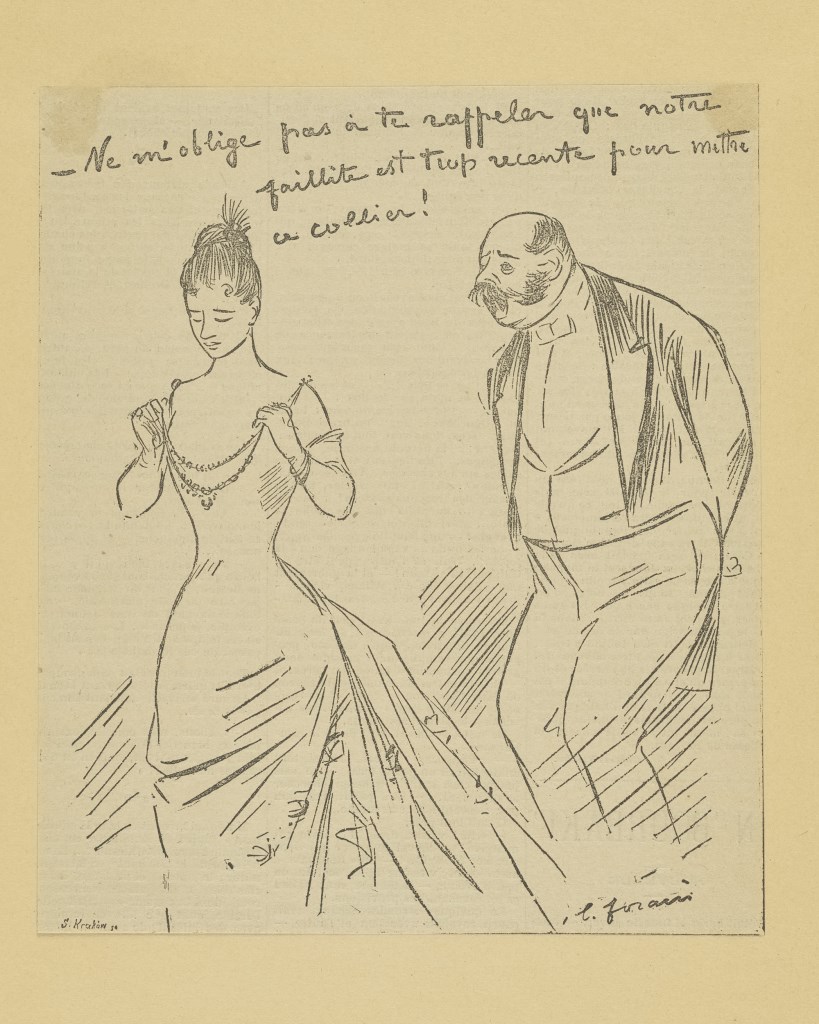 – Ne m'oblige pas à te rappeler que notre
faillite est trop recente pour mettre
ce collier !
l. forain